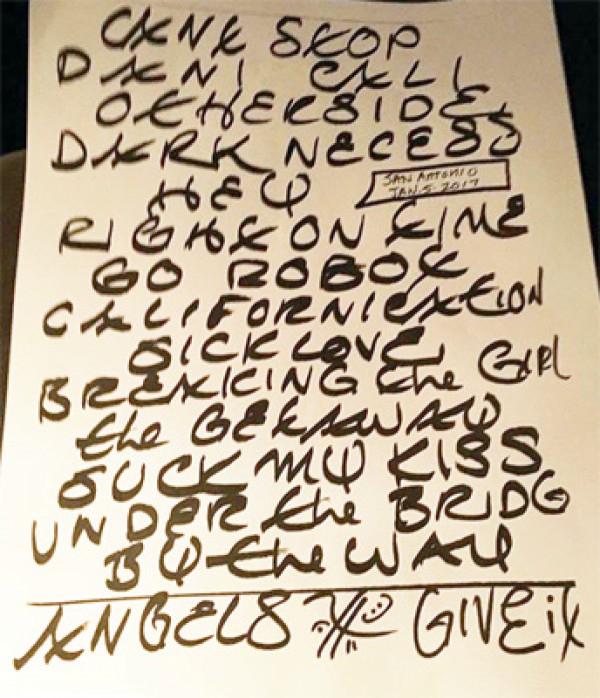 CANT STOP
DANI CALI
OTHERSIDE
DARK NECESS
HEY
SAN ANTONIO
JAN.5.2017
RIGHT ON TIME
GO ROBOT
CALIFORNICATION
SICK LOVE
BREAKING the GIRL
the GETAWAY
SUCK MY KISS
UNDER the BRIDG
BY the WAY
ANGELS GIVE it